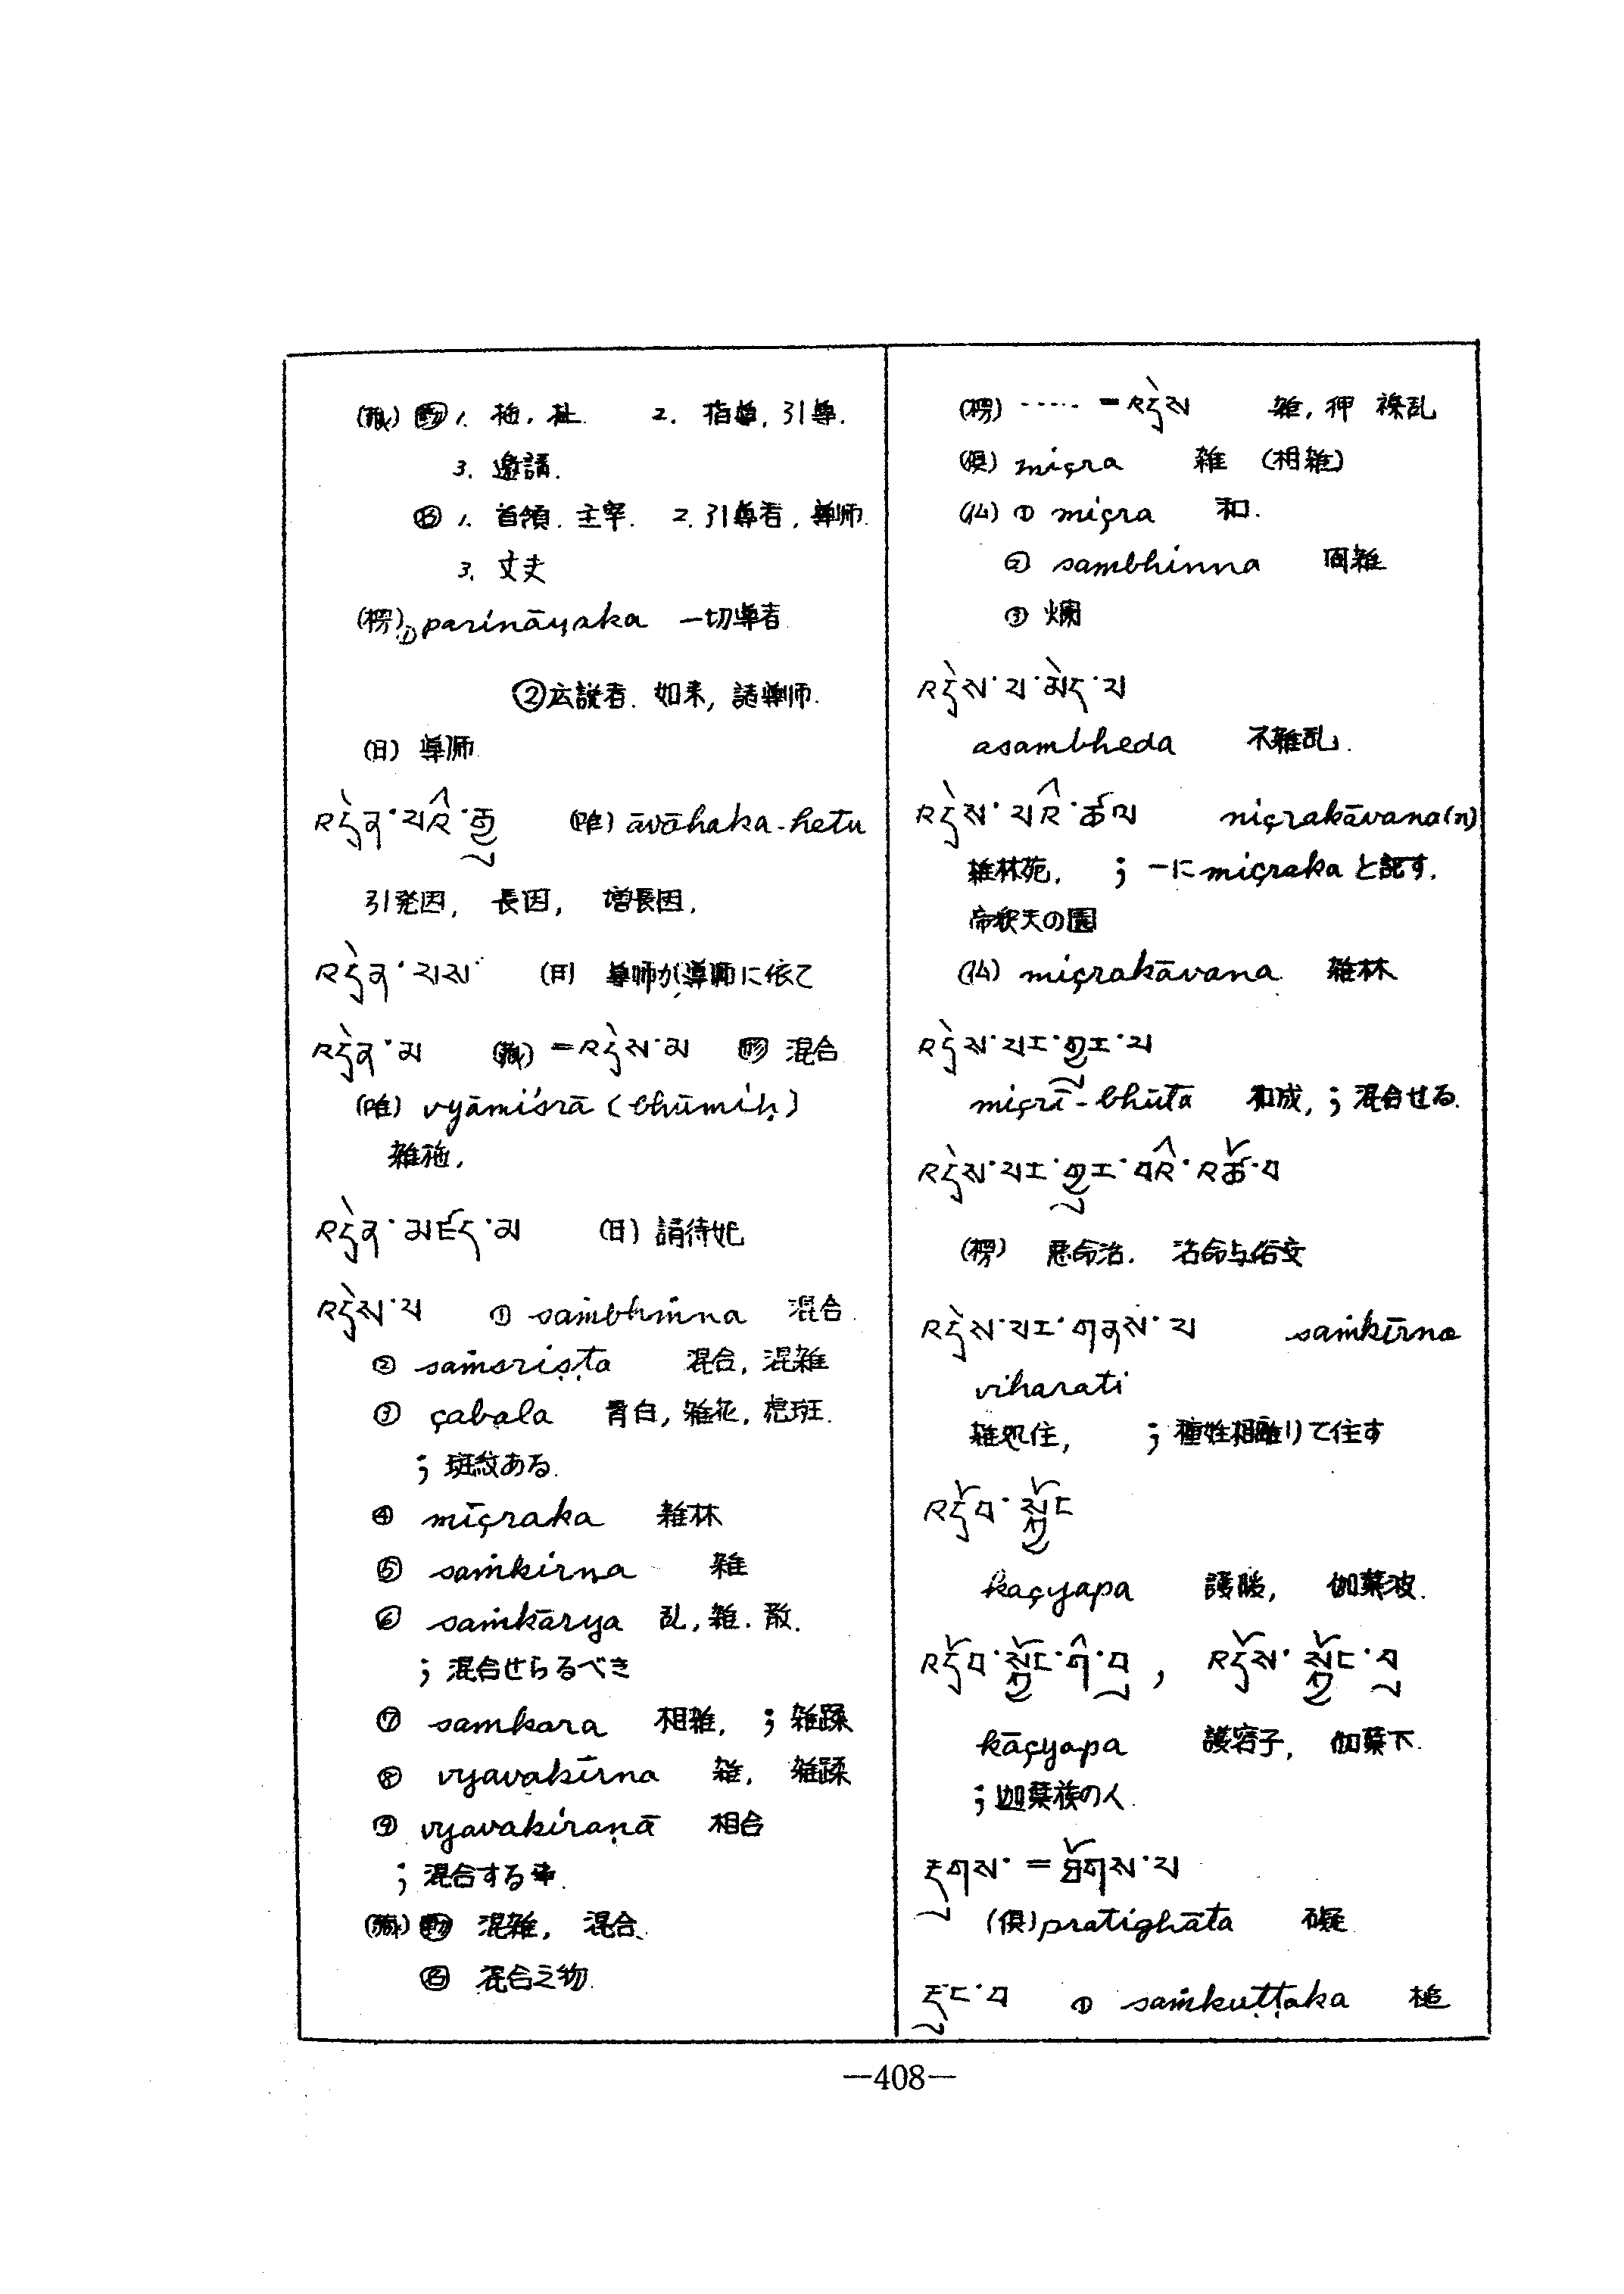 (蔵) 動 1. 拖, 扯 2. 指導, 引導.
3. 邀請.
名 1. 首領. 主宰. 2. 引導者, 導师.
3. 丈夫
(楞) ① parināyaka 一切導者
② 広説者. 如来, 諸導师.
(日) 導师
འདྲེན་པའི་རྒྱུ (唯) āvāhaka-hetu
引発因, 長因, 増長因.
འདྲེན་པས་ (日) 導师が,導師に依て
འདྲེན་མ (蔵) =འདྲེས་མ 形 混合
(唯) vyāmiśrā (bhūmiḥ)
雑施.
འདྲེན་མཛད་མ (日) 請待妃
འདྲེས་པ ① saṁbhinna 混合.
② saṁsriṣṭa 混合, 混雑
③ çabala 青白, 雑花, 虎斑.
; 斑紋ある.
④ miçraka 雑林
⑤ saṁkirṇa 雑
⑥ saṁkārya 乱, 雑. 散.
; 混合せらるべき
⑦ samkara 相雑, ; 雑蹂
⑧ vyavakīrna 雑, 雑蹂
⑨ vyavakiraṇā 相合
; 混合する事.
(蔵) 動 混雑, 混合.
名 混合之物.
(楞) ····· =འདྲེས 雑, 狎 襍乱
(倶) miçra 雑 (相雑)
(仏) ① miçra 和.
② sambhinna 間雑
③ 爛
འདྲེས་པ་མེད་པ
asambheda 不雑乱.
འདྲེས་པའི་ཚལ niçrakāvana(n)
雑林苑. ; 一に miçraka と記す.
帝釈天の園
(仏) miçrakāvana 雑林
འདྲེས་པར་གྱུར་པ
miçrī-bhūta 和成, ; 混合せる.
འདྲེས་པར་གྱུར་བའི་འཚོ་བ
(楞) 悪命治. 活命与俗交
འདྲེས་པར་གནས་པ saṁkīrna
viharati
雑処住, ; 種姓相離りて住す
འདྲོབ་སྐྱོང
kaçyapa 護膳, 伽葉波.
འདྲོབ་སྐྱོང་གི་བུ, འདྲོས་སྐྱོང་བུ
kāçyapa 護容子, 伽葉下.
; 迦葉族の人.
རྡུགས་ = ཐོགས་པ
(倶) pratighāta 礙
རྡུང་བ ① saṁkuṭṭaka 槌
—408—